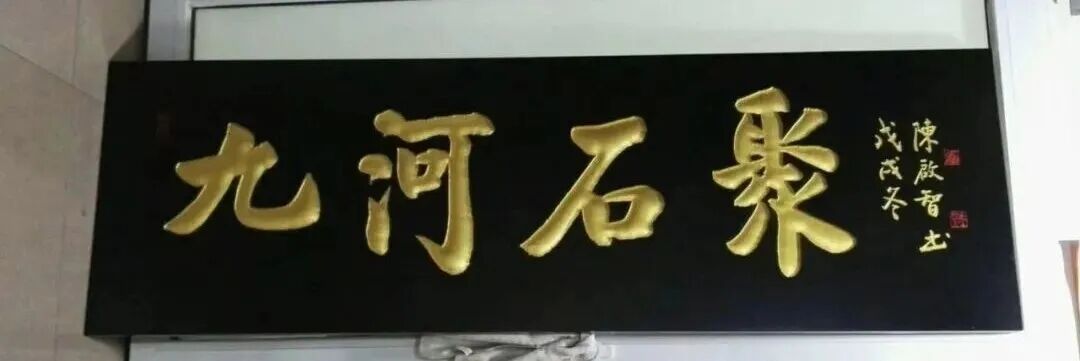 九河石聚
戊戌冬
陳啟智书